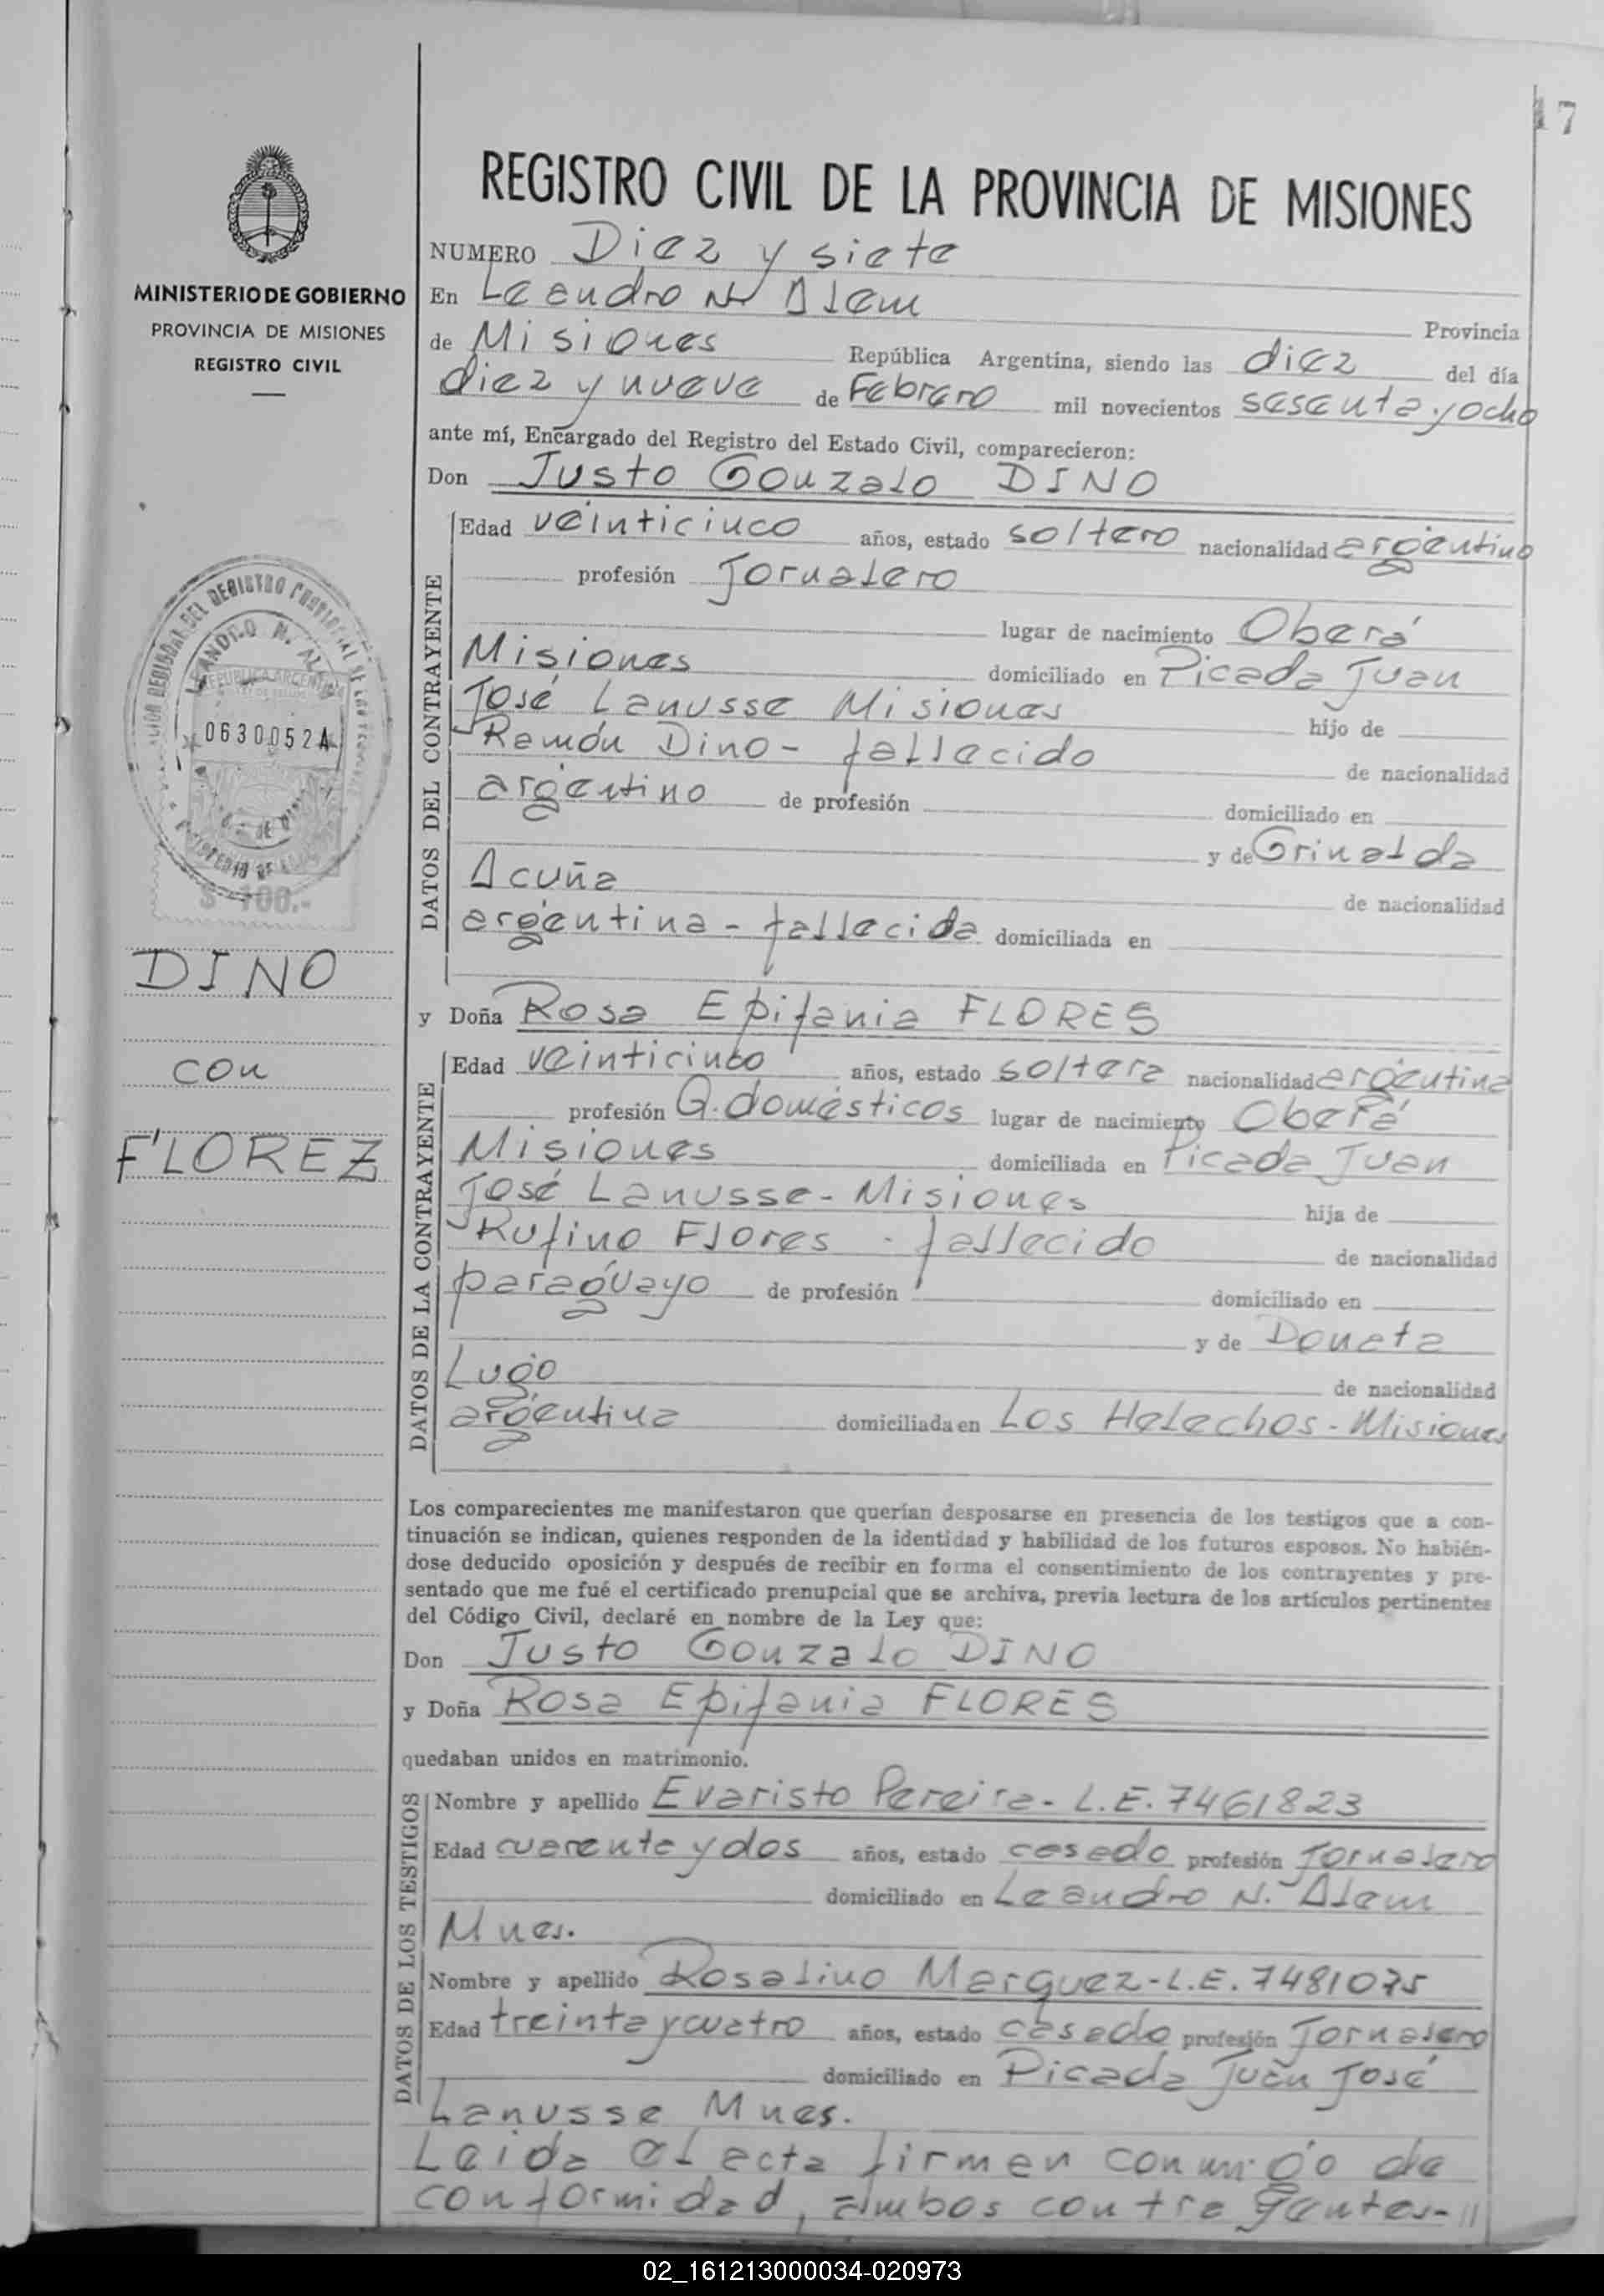 17
REGISTRO CIVIL DE LA PROVINCIA DE MISIONES
MINISTERIO DE GOBIERNO
PROVINCIA DE MISIONES
REGISTRO CIVIL
LEANDRO N. AL
REPUBLICA ARGENTINA
0630052A
$ 100.-
DINO
con
FLOREZ
NUMERO Diez y siete
En Leandro N Alem Provincia
de Misiones República Argentina, siendo las diez del día
diez y nueve de Febrero mil novecientos sesenta y ocho
ante mí, Encargado del Registro del Estado Civil, comparecieron:
Don Justo Gonzalo DINO
DATOS DEL CONTRAYENTE
Edad veinticinco años, estado soltero nacionalidad argentino
profesión Jornalero
lugar de nacimiento Oberá
Misiones domiciliado en Picada Juan
José Lanusse Misiones hijo de
Ramón Dino - fallecido de nacionalidad
argentino de profesión domiciliado en
y de Grinalda
Acuña de nacionalidad
argentina - fallecida domiciliada en
y Doña Rosa Epifania FLORES
DATOS DE LA CONTRAYENTE
Edad veinticinco años, estado soltera nacionalidad argentina
profesión Q. domésticos lugar de nacimiento Oberá
Misiones domiciliada en Picada Juan
José Lanusse - Misiones hija de
Rufino Flores - fallecido de nacionalidad
paraguayo de profesión domiciliado en
y de Doneta
Lugo de nacionalidad
argentina domiciliada en Los Helechos - Misiones
Los comparecientes me manifestaron que querían desposarse en presencia de los testigos que a con-
tinuación se indican, quienes responden de la identidad y habilidad de los futuros esposos. No habién-
dose deducido oposición y después de recibir en forma el consentimiento de los contrayentes y pre-
sentado que me fué el certificado prenupcial que se archiva, previa lectura de los artículos pertinentes
del Código Civil, declaré en nombre de la Ley que:
Don Justo Gonzalo DINO
y Doña Rosa Epifania FLORES
quedaban unidos en matrimonio.
DATOS DE LOS TESTIGOS
Nombre y apellido Evaristo Pereira - L.E. 7461823
Edad cuarenta y dos años, estado casado profesión Jornalero
domiciliado en Leandro N. Alem
Mnes.
Nombre y apellido Rosalino Marquez - L.E. 7481075
Edad treinta y cuatro años, estado casado profesión Jornalero
domiciliado en Picada Juan José
Lanusse Mnes.
Leida el acta firman conmigo de
conformidad, ambos contragentes - //
02_161213000034-020973